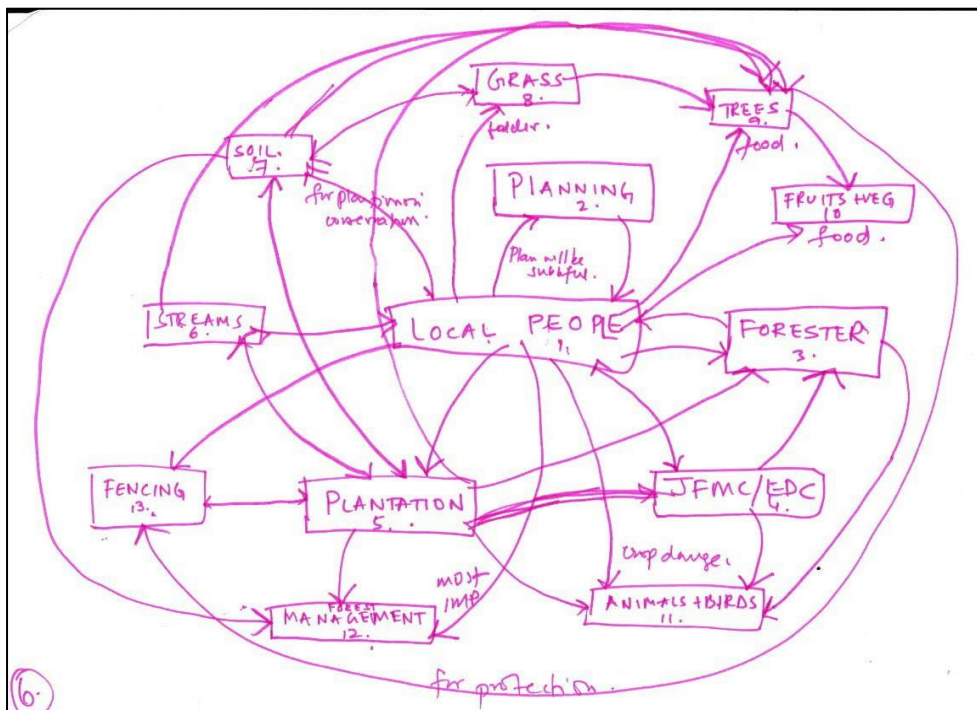 GRASS
8.
fodder.
TREES
9.
food.
SOIL.
7.
for plantation
conservation.
PLANNING
2.
FRUITS + VEG
10
food.
Plan will be
STREAMS
6.
LOCAL PEOPLE
1.
FORESTER
3.
FENCING
13.
PLANTATION
5.
JFMC/EDC
4.
crop damge.
MOST
IMP
FOREST
MANAGEMENT
12.
ANIMALS + BIRDS
11.
for protection.
6.